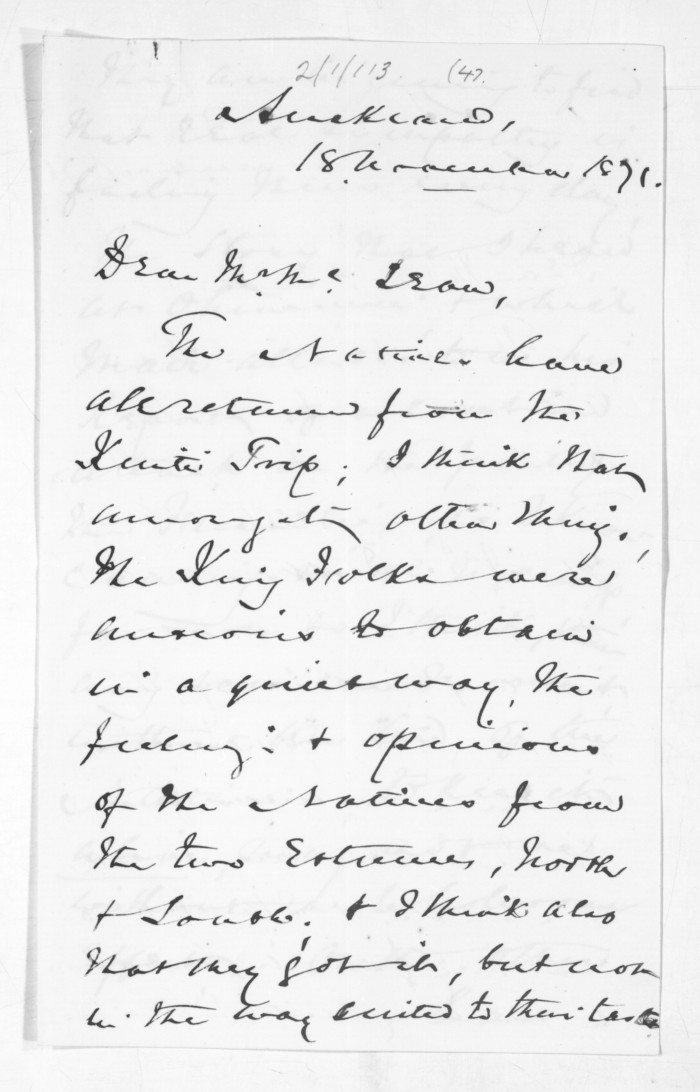 2/1/113 (47.
Auckland,
18 November 1871.
Dear Mr. Mc. Lean,
The Natives have
all returned from the
Trip; I think that
amongst other things,
the King Folks were
anxious to obtain
in a quiet way, the
feeling's & opinions
of the Natives from
the two Extremes, North
& South; & I think also
that they got it, but not
in the way suited to their taste